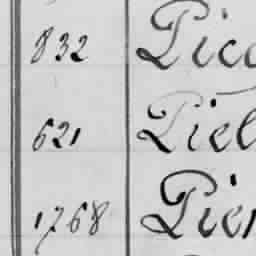 832 Pico
621 Piel
1768 Pier